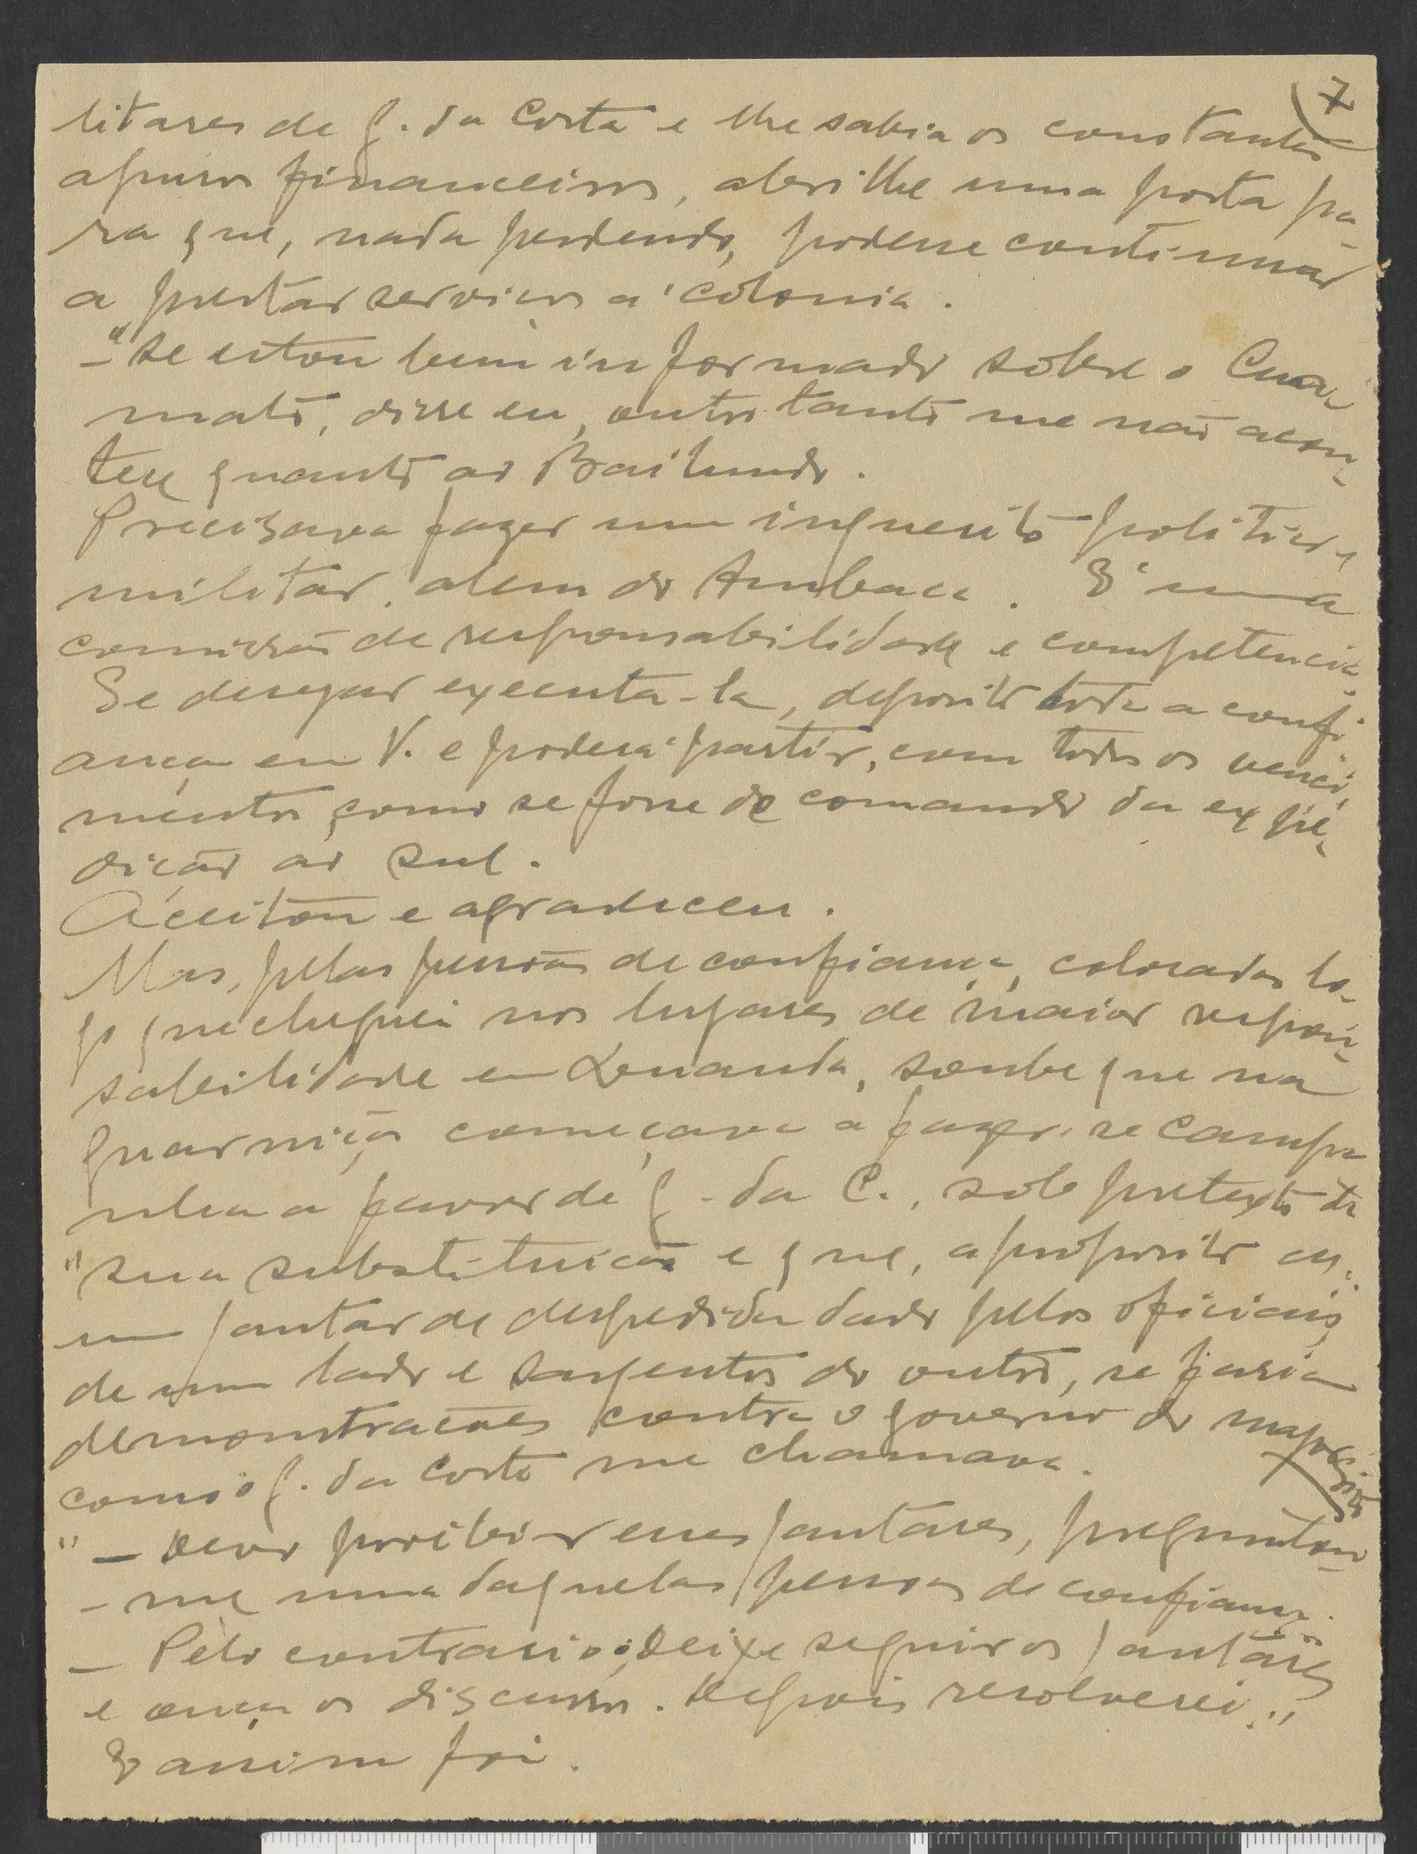 7
litares de G. da Costa e lhe sabia os constantes
apuros financeiros, abri lhe uma porta pa-
ra que, nada perdendo, podesse continuar
a prestar serviços a' colonia.
-"Se estou bem informado sobre o Cua-
mato, disse eu, outro tanto me não acon-
tece quanto ao Bailundo.
Precisava fazer um inquerito politico e
militar alem do Ambaca. E' uma
comissão de responsabilidade e competencia.
Se desejar executa-la, deposito toda a confi-
ança em V. e podera' partir, com todos os venci-
mentos, como se fosse do comando da expe-
dição ao sul.
Aceitou e agradeceu.
Mas, pelas pessoas de confiança, colocadas lo-
go que cheguei nos lugares de maior respon-
sabilidade em Loanda, soube que na
guarnição começava a fazer-se campa
nha a favor de G. da C., sob pretexto da
"sua substituição e que, a proposito de
um jantar de despedida dado pelos oficiais
de um lado e sargentos do outro, se faria
demonstrações contra o governo do major
como o G. da Costa me chamava.
" - Devo proibir esses jantares, preguntou-
- me uma daquelas pessoas de confiança.
- Pelo contrario; Deixe seguir os jantares
e ouça os discursos. Depois resolverei."
E assim foi.